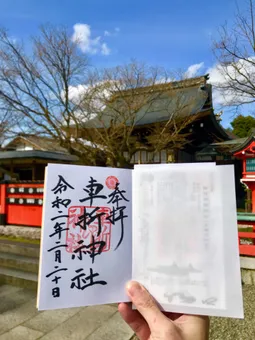 奉拝
車折神社
令和二年二月二十日